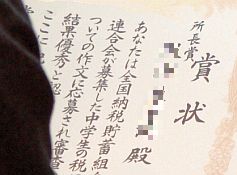 所長賞
賞状
殿
あなたは全国納税貯蓄組
連合会が募集した中学生の税
ついての作文に応募され審査
結果優秀と認
ここに